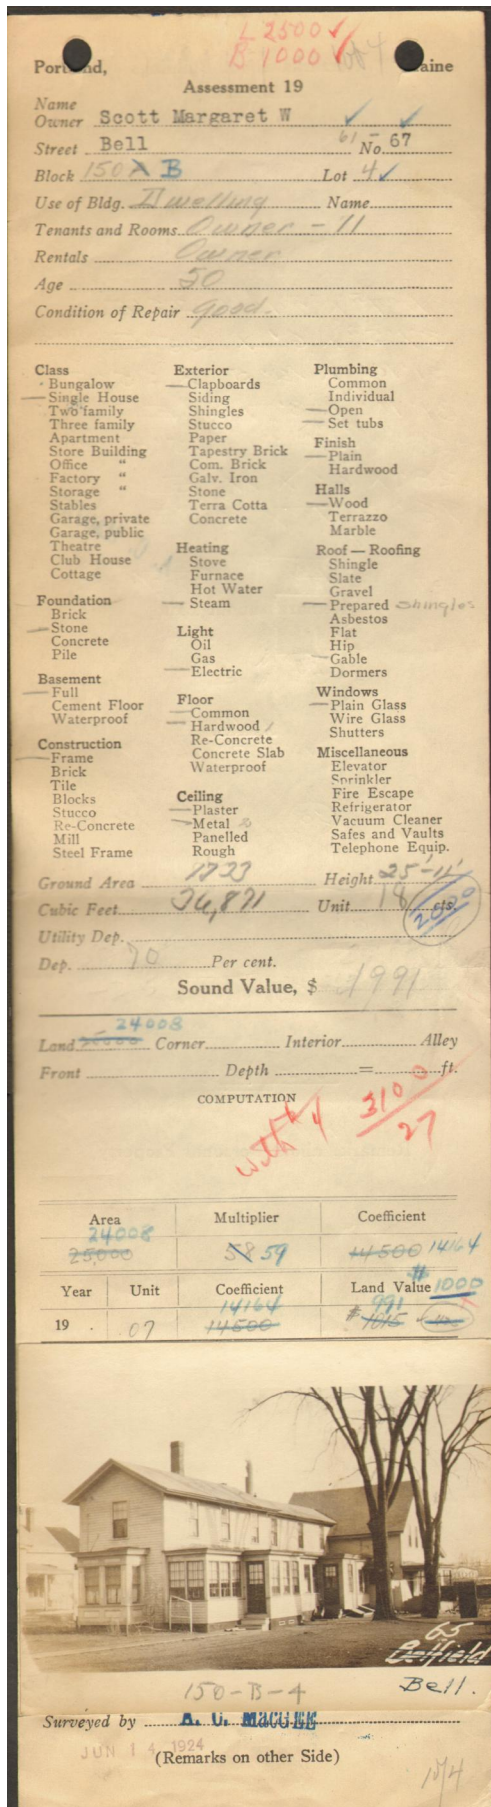 L 2500 ✓
B 1000 ✓ 1004
Portland, Maine
Assessment 19
Name
Owner Scott Margaret W
Street Bell 61 - No. 67
Block 150 A B Lot 4 ✓
Use of Bldg. Dwelling Name
Tenants and Rooms Owner - 11
Rentals Owner
Age 50
Condition of Repair good.
Class
Bungalow
Single House
Two family
Three family
Apartment
Store Building
Office "
Factory "
Storage "
Stables
Garage, private
Garage, public
Theatre
Club House
Cottage
Foundation
Brick
Stone
Concrete
Pile
Basement
Full
Cement Floor
Waterproof
Construction
Frame
Brick
Tile
Blocks
Stucco
Re-Concrete
Mill
Steel Frame
Exterior
Clapboards
Siding
Shingles
Stucco
Paper
Tapestry Brick
Com. Brick
Galv. Iron
Stone
Terra Cotta
Concrete
Heating
Stove
Furnace
Hot Water
Steam
Light
Oil
Gas
Electric
Floor
Common
Hardwood
Re-Concrete
Concrete Slab
Waterproof
Ceiling
Plaster
Metal
Panelled
Rough
Plumbing
Common
Individual
Open
Set tubs
Finish
Plain
Hardwood
Halls
Wood
Terrazzo
Marble
Roof — Roofing
Shingle
Slate
Gravel
Prepared Shingles
Asbestos
Flat
Hip
Gable
Dormers
Windows
Plain Glass
Wire Glass
Shutters
Miscellaneous
Elevator
Sprinkler
Fire Escape
Refrigerator
Vacuum Cleaner
Safes and Vaults
Telephone Equip.
Ground Area 1733 Height 25'-11'
Cubic Feet 36,871 Unit 18 cts.
2000
Utility Dep.
Dep. 70 Per cent.
Sound Value, $ 1991
24008
Land 25000 Corner Interior Alley
Front Depth = ft.
COMPUTATION
with 4 3100
27
Area Multiplier Coefficient
24008
25,000 58 59 14500 14164
Year Unit Coefficient Land Value $1000
14164 991
19 . 07 14500 $1015
65
Belfield
Bell.
150-B-4
Surveyed by A. C. MacGEE
JUN 14 1924
(Remarks on other Side)